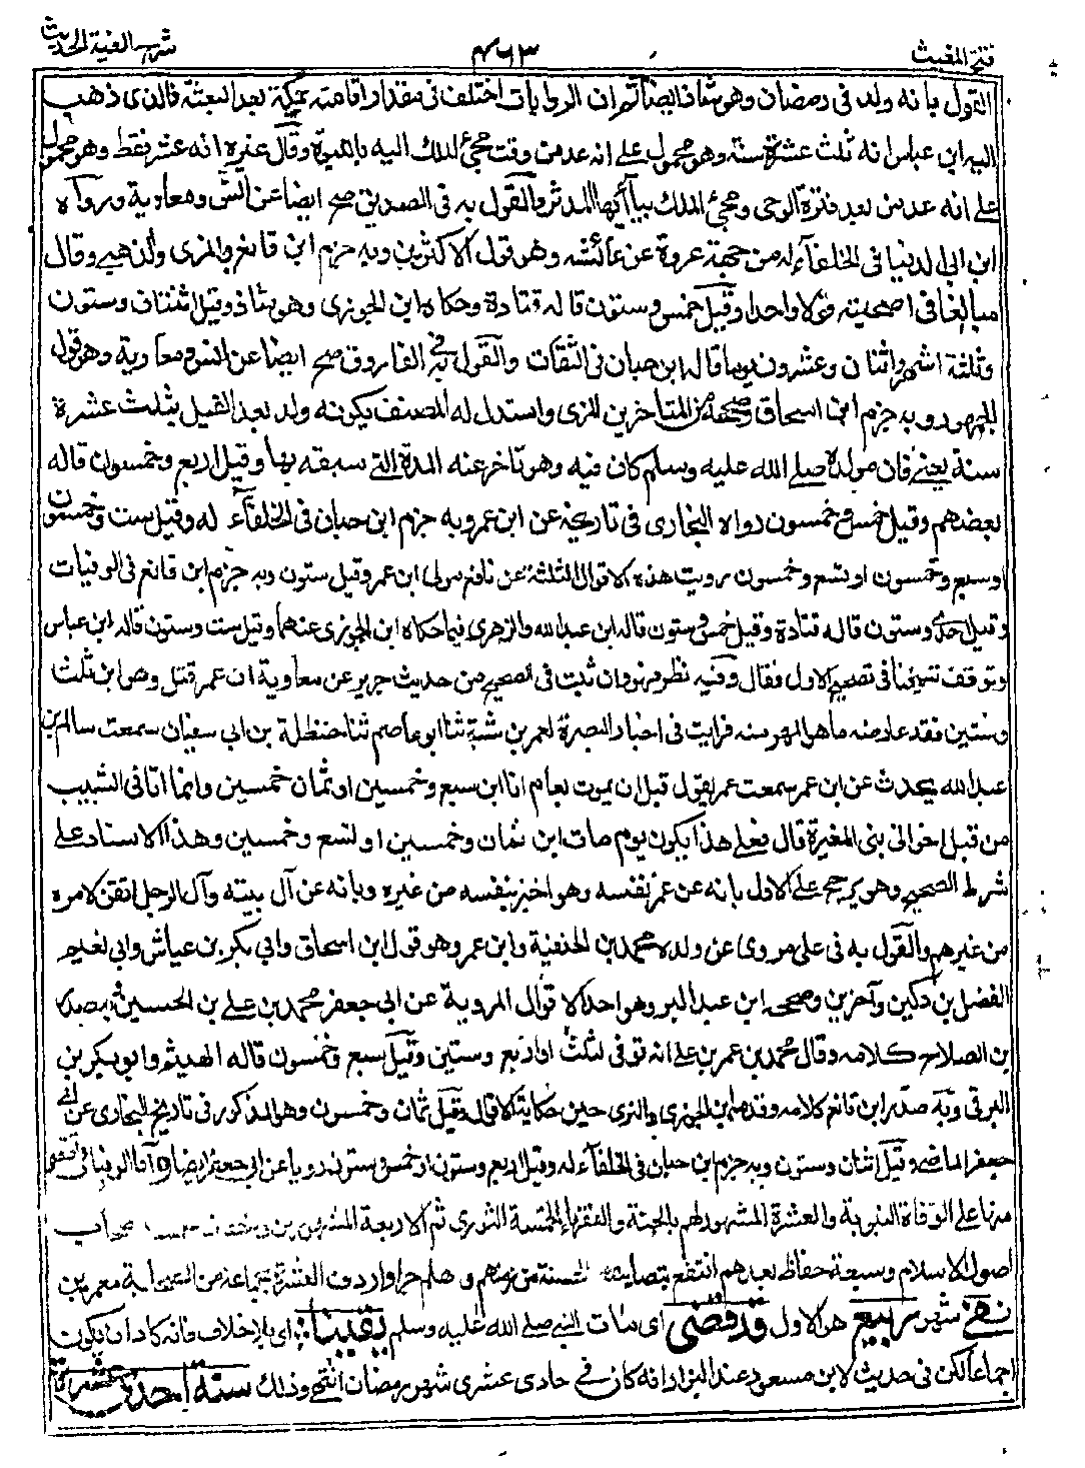 فتح المغيث ٤٦٣ شرح الفية الحديث
القول بانه ولد فى رمضان وهو شاذ ايضا ثم ان الروايات اختلف فى مقدار اقامته بمكة بعد البعثة فالذى ذهب
اليه ابن عباس انه ثلث عشرة سنة وهو محمول على انه عد من وقت مجئ الملك اليه بالنبوة وقال غيره انه عشر فقط وهو محمول
على انه عد من بعد فترة الوحى ومجئ الملك بياأيها المدثر والقول به فى الصديق صح ايضا عن انس ومعاوية ورواه
ابن ابى الدنيا فى الخلفآء له من جهة عروة عن عائشه وهو قول الاكثرين وبه جزم ابن قانع والمزى والذهبى وقال
مبالغا فى اصحيته قولا واحدا وقيل خمس وستون قاله قتادة وحكاه ابن الجوزى وهو شاذ وقيل اثنتان وستون
وثلثة اشهر واثنان وعشرون يوما قاله ابن حبان فى الثقات والقول به فى الفاروق صح ايضا عن انس ومعاوية وهو قول
الجمهور وبه جزم ابن اسحاق وصححه من المتاخرين المزى واستدل له المصنف بكونه ولد بعد الفيل بثلث عشرة
سنة يعنى فان مولده صلى الله عليه وسلم كان فيه وهو تاخر عنه المدة التى سبقه بها وقيل اربع وخمسون قاله
بعضهم وقيل خمس وخمسون رواه البخارى فى تاريخه عن ابن عمر وبه جزم ابن حبان فى الخلفآء له وقيل ست وخمسون
او سبع وخمسون او تسع وخمسون رويت هذه الاقوال الثلثة عن نافع مولى ابن عمر وقيل ستون وبه جزم ابن قانع فى الوفيات
وقيل احدى وستون قاله قتادة وقيل خمس وستون قاله ابن عبد الله والزهرى فيما حكاه ابن الجوزى عنهما وقيل ست وستون قاله ابن عباس
وتوقف شيخنا فى تصحيح الاول فقال وفيه نظر فهو وان ثبت فى الصحيح من حديث جرير عن معاوية ان عمر قتل وهو ابن ثلث
وستين فقد عارضه ما هو اظهر منه فرايت فى اخبار البصرة لعمر بن شبة ثنا ابو عاصم ثنا حنظلة بن ابى سفيان سمعت سالم بن
عبد الله يحدث عن ابن عمر سمعت عمر يقول قبل ان يموت بعام انا ابن سبع وخمسين او ثمان خمسين وانما اتانى الشيب
من قبل اخوالى بنى المغيرة قال فعلى هذا يكون يوم مات ابن ثمان وخمسين او تسع وخمسين وهذا الاسناد على
شرط الصحيح وهو يرجح على الاول بانه عن عمر نفسه وهو اخبر بنفسه من غيره وبانه عن آل بيته وآل الرجل اتقن لامره
من غيرهم والقول به فى على مروى عن ولده محمد بن الحنفية وابن عمر وهو قول ابن اسحاق وابي بكر بن عياش وابي نعيم
الفضل بن دكين وآخرين وصححه ابن عبد البر وهو احد الاقوال المروية عن ابى جعفر محمد بن على بن الحسين وبه صدر
بن الصلاح كلامه وقال محمد بن عمر بن على انه توفى لثلث او اربع وستين وقيل سبع وخمسون قاله الهيثم وابو بكر بن
البرقى وبه صدر ابن قانع كلامه وقدمه ابن الجوزى والمزى حين حكاية الاقوال وقيل ثمان وخمسون وهو المذكور فى تاريخ البخارى عن ابى
جعفر الماضى وقيل اثنان وستون وبه جزم ابن حبان فى الخلفآء له وقيل اربع وستون او خمس وستون رويا عن ابى جعفر ايضا واما الوفيات فقصر
منها على الوفاة النبوية والعشرة المشهود لهم بالجنة والفقهاء الخمسة الثورى ثم الاربعة المشهورين خمسة اصحاب
اصول الاسلام وسبعة حفاظ بعدهم انتفع بتصانيفهم الحسنة من زمنهم وهلم جرا واردف العشرة بجماعة من الصحابة معمرين
ففى شهر ربيع هو الاول قد قضى اى مات النبى صلى الله عليه وسلم يقينا اى بلا خلاف فانه كاد ان يكون
اجماعا لكن فى حديث لابن مسعود عند البزار انه كان فى حادى عشرى شهر رمضان انتهى وذلك سنة احدى عشرة